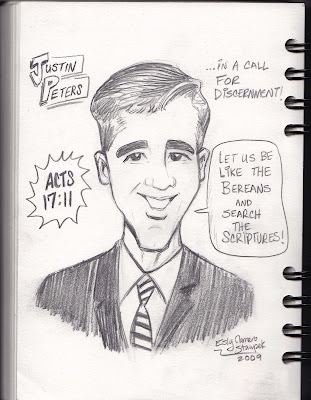 JUSTIN
PETERS
...IN A CALL
FOR
DISCERNMENT!
ACTS
17:11
LET US BE
LIKE THE
BEREANS
AND
SEARCH
THE
SCRIPTURES!
2009